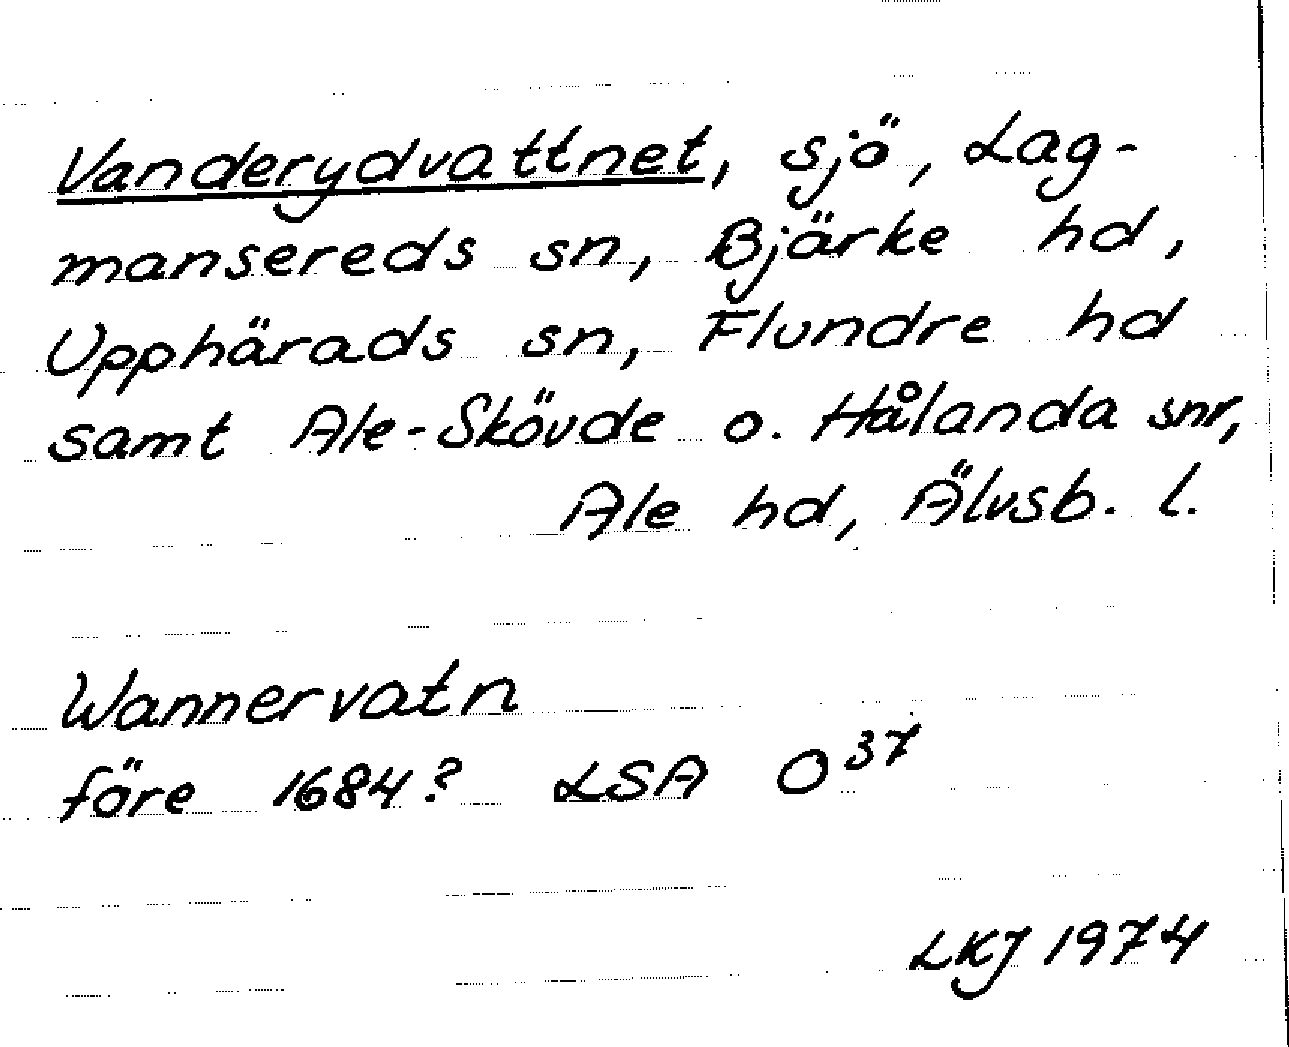 Vanderydvattnet, sjö, Lag-
mansereds sn, Bjärke hd,
Upphärads sn, Flundre hd
samt Ale-Skövde o. Hålanda snr,
Ale hd, Älvsb. l.
Wannervatn
före 1684? LSA O37
LKJ 1974